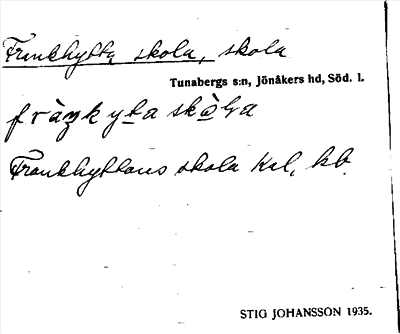 Frankhytta skola, skola
Tunabergs s:n, Jönåkers hd, Söd. l.
fràŋkyta skòla
Frankhyttans skola Kal, kb.
STIG JOHANSSON 1935.